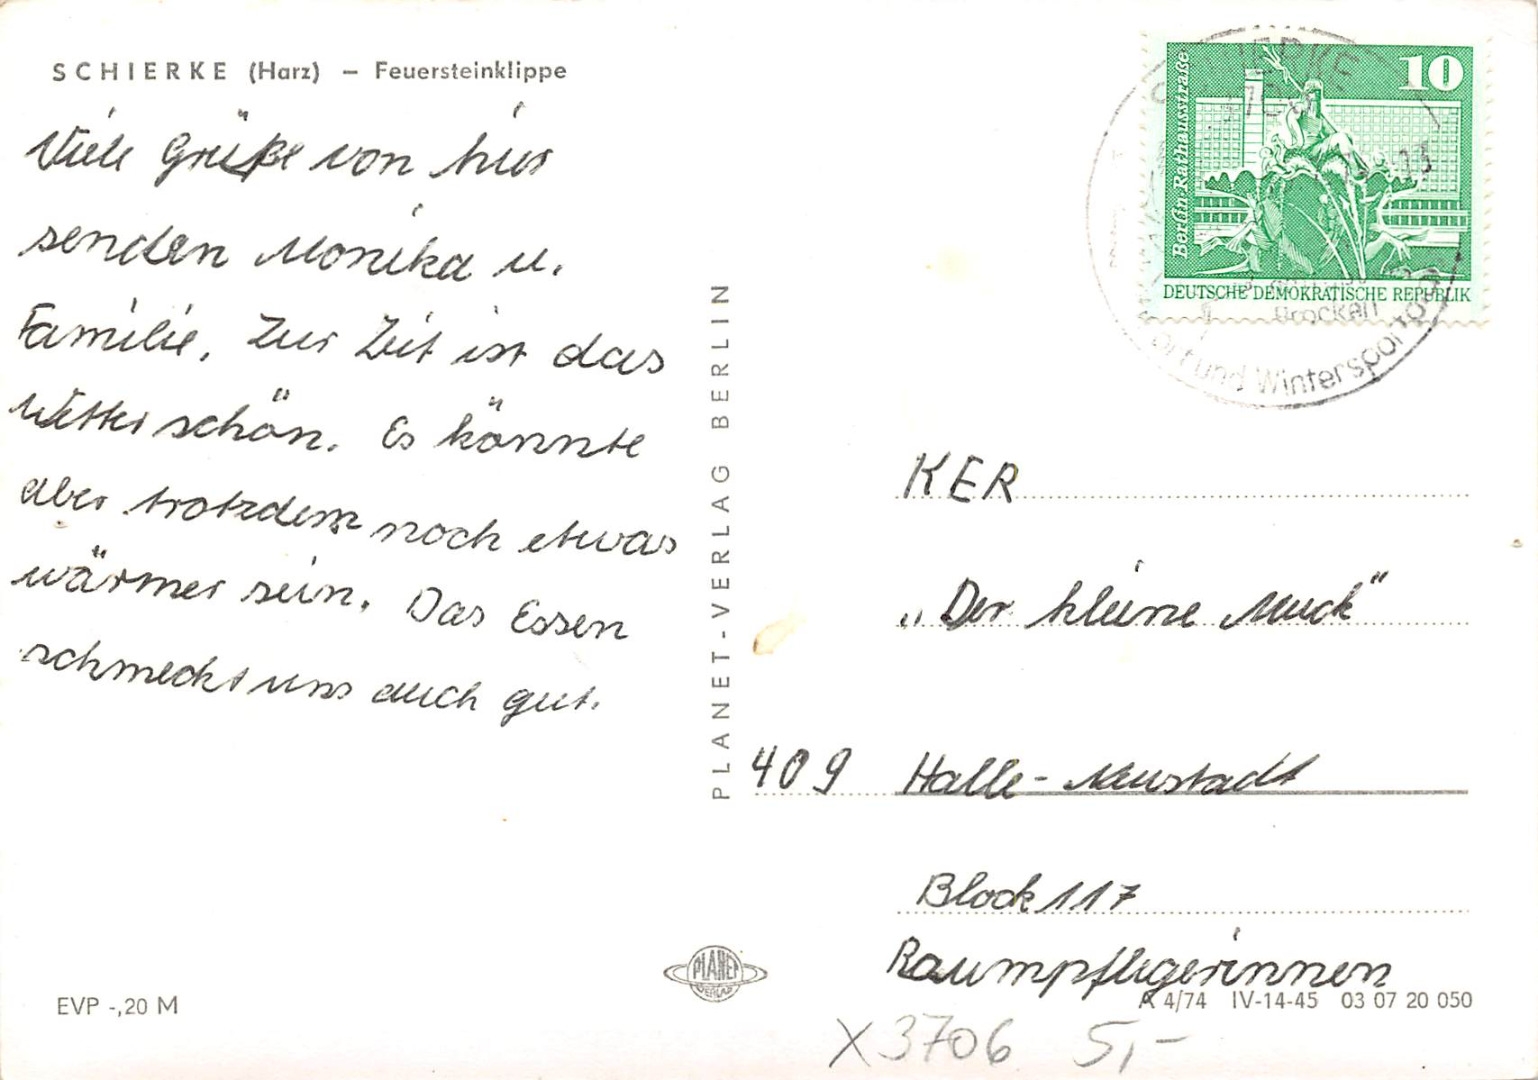 SCHIERKE (Harz) – Feuersteinklippe
Viele Grüße von hier
senden Monika u.
Familie. Zur Zeit ist das
Wetter schön. Es könnte
aber trotzdem noch etwas
wärmer sein. Das Essen
schmeckt uns auch gut.
EVP -,20 M
PLANET-VERLAG BERLIN
PLANET
VERLAG
10
Berlin Rathausstraße
DEUTSCHE DEMOKRATISCHE REPUBLIK
SCHIERKE
Brocken
und Wintersport
KER
„Der kleine Muck"
409 Halle-Neustadt
Block 117
Raumpflegerinnen
A 4/74 IV-14-45 03 07 20 050
X3706 5,-